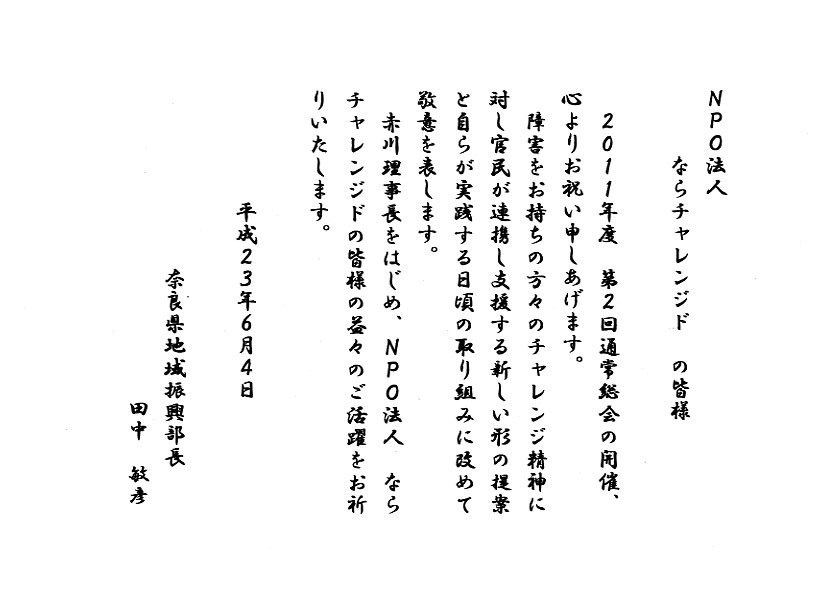 NPO法人
ならチャレンジド　の皆様
２０１１年度　第２回通常総会の開催、
心よりお祝い申しあげます。
障害をお持ちの方々のチャレンジ精神に
対し官民が連携し支援する新しい形の提案
と自らが実践する日頃の取り組みに改めて
敬意を表します。
赤川理事長をはじめ、NPO法人　なら
チャレンジドの皆様の益々のご活躍をお祈
りいたします。
平成２３年６月４日
奈良県地域振興部長
田中　敏彦